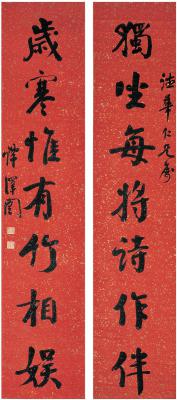 德華仁兄屬
獨坐每將詩作伴
歲寒惟有竹相娛
譚澤闓